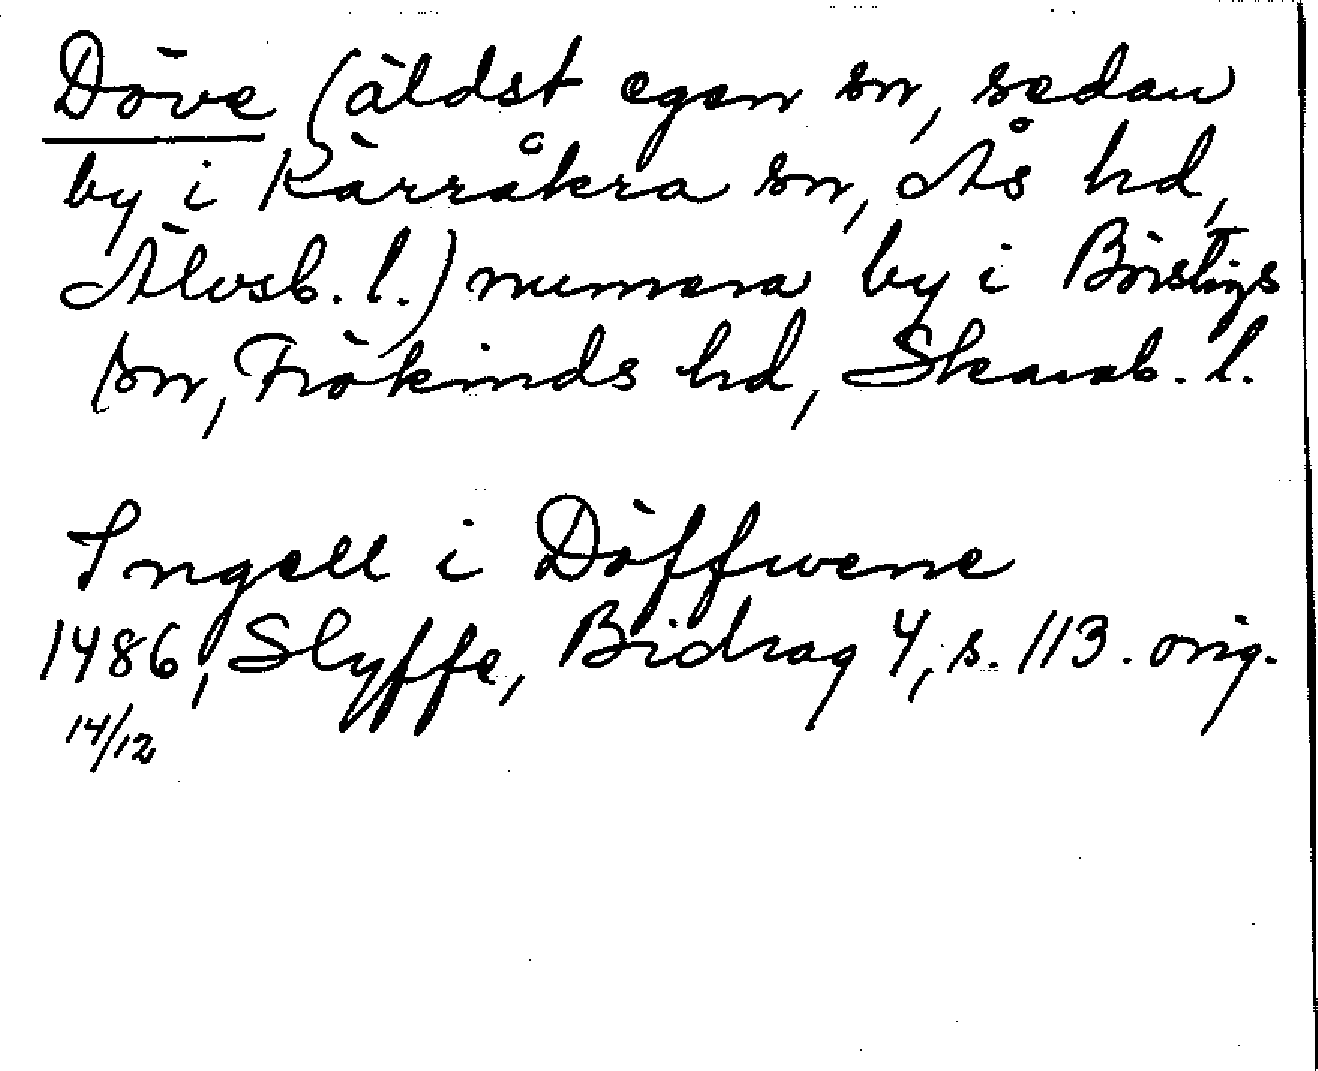 Döve (äldst egen sn, sedan
by i Kärråkra sn, Ås hd,
Älvsb. l.) numera by i Börstigs
sn, Frökinds hd, Skarab. l.
Ingell i Döffwene
1486, Slyffe, Bidrag 4, s. 113. orig.
14/12